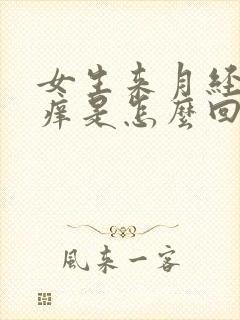 女生来月经
痒是怎麼回
風来一客